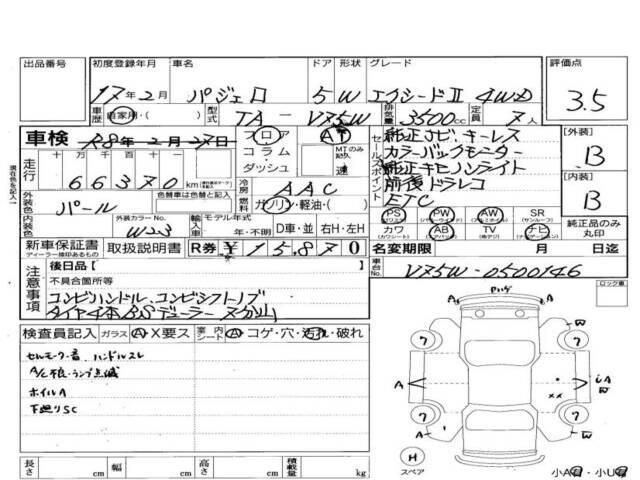 出品番号
初度登録年月
車名
ドア 形状
グレード
評価点
17年2月
パジェロ
5 W
エクシードⅡ 4WD
3.5
車歴 自家用・( )
型式 TA-V75W
排気量 3500cc
定員 7人
車検 R8年2月27日
フロア
コラム・
ダッシュ
AT
MTのみ記入
速
セールスポイント
純正ナビ・キーレス
カラーバックモニター
前後ドラレコ
ETC
[外装]
B
[内装]
B
走行
十 万 千 百 十 一
66370km
冷房 AAC
外装色 パール
内装色
色替車は色替と記入
燃料 ガソリン・軽油・( )
外装カラーNo. W23
輸入車
モデル年式
年・不明
D車・並 右H・左H
PS PW AW SR
カワ AB TV ナビ
純正品のみ丸印
新車保証書
ディーラー捺印あるもの
取扱説明書
R券 ¥15,870
名変期限 月 日迄
車台No. V75W-0500146
注意事項
後日品[ ]
不具合箇所等
コンビハンドル・コンビシフトノブ
ロック車
検査員記入
ガラス A・X要ス
室内シート A・コゲ・穴・汚れ・破れ
セルモーター音 ハンドルスレ
A/C不良・ランプ点滅
ホイルA
下廻りSC
長さ cm
幅 cm
高さ cm
積載量 kg
ハゲ
A
W
7
7
A
A
W
7
7
A
W
H
スペア
小A有・小U有
現在色を記入